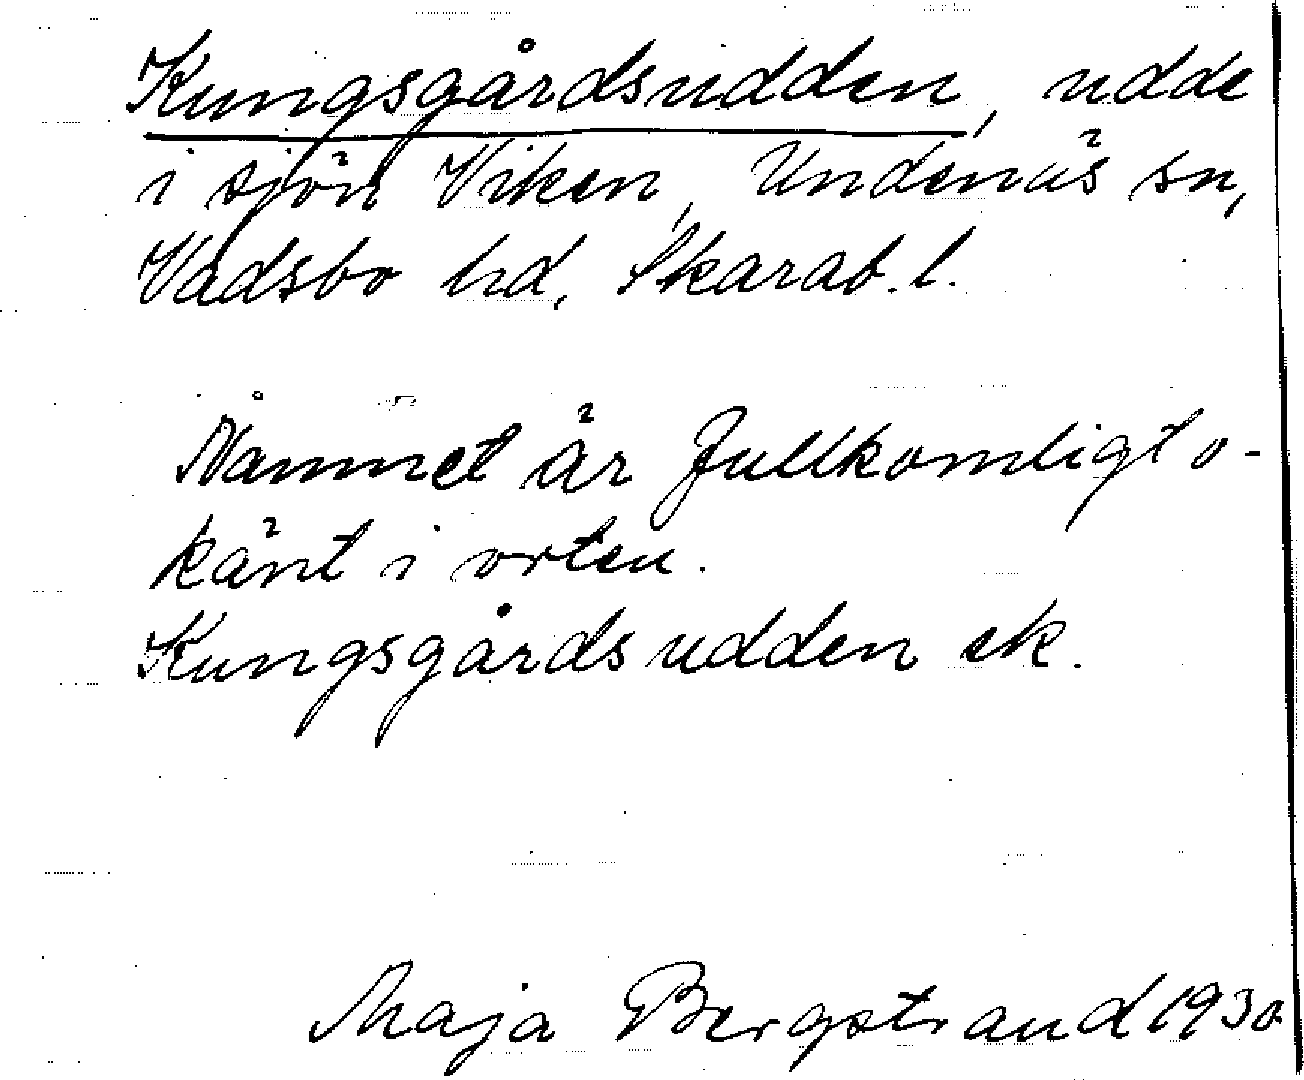 Kungsgårdsudden, udde
i sjön Viken, Undenäs sn,
Vadsbo hd, Skarab.l.
Namnet är fullkomligt o-
känt i orten.
Kungsgårdsudden ek.
Maja Bergstrand 1930